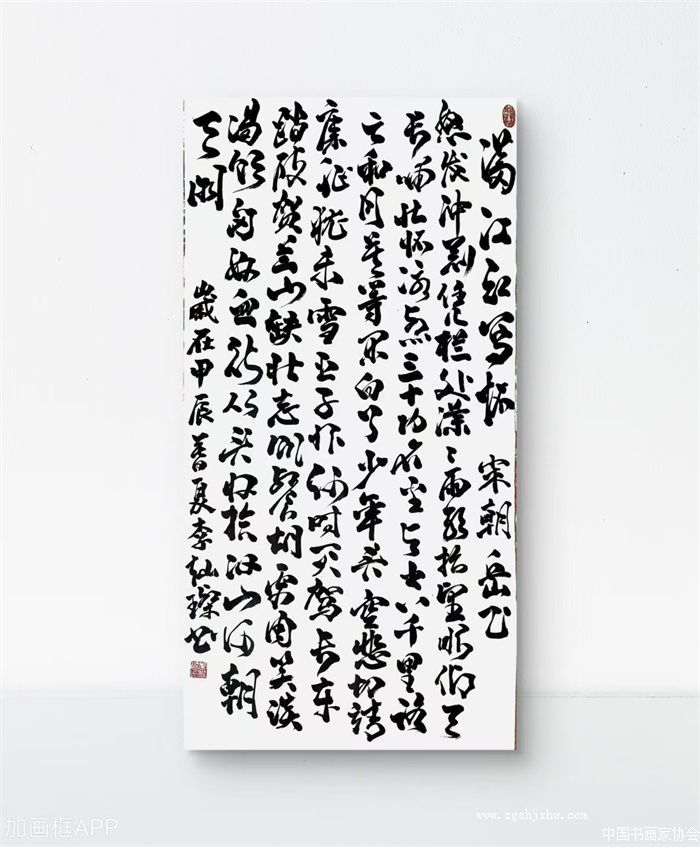 满江红写怀 宋朝岳飞
怒发冲冠凭栏处潇々雨歇抬望眼仰天
长啸壮怀激烈三十功名尘与土八千里路
云和月莫等闲白了少年头空悲切靖
康耻犹未雪臣子恨何时灭驾长车
踏破贺兰山缺壮志饥餐胡虏肉笑谈
渴饮匈奴血待从头收拾河山朝
天阙 歲在甲辰夏李仙璨书
www.zgshjxhw.com
加画框APP
中国书画家协会